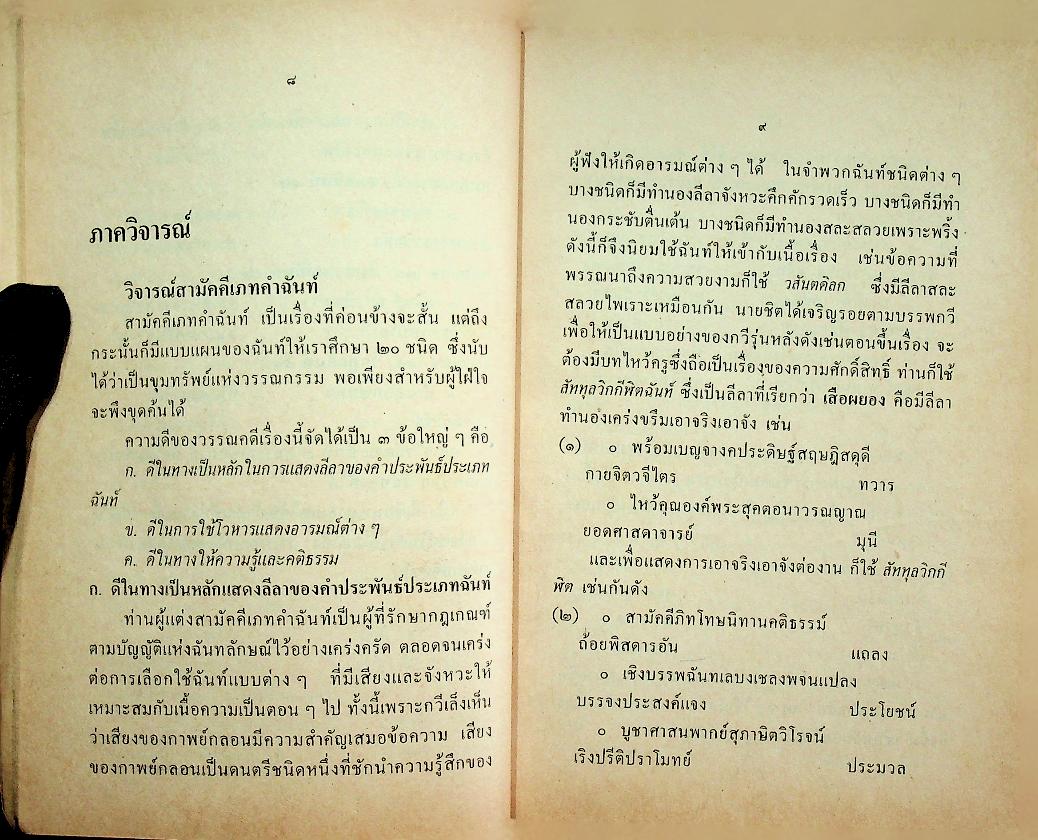 ๘
ภาควิจารณ์
วิจารณ์สามัคคีเภทคำฉันท์
สามัคคีเภทคำฉันท์ เป็นเรื่องที่ค่อนข้างจะสั้น แต่ถึง
กระนั้นก็มีแบบแผนของฉันท์ให้เราศึกษา ๒๐ ชนิด ซึ่งนับ
ได้ว่าเป็นขุมทรัพย์แห่งวรรณกรรม พอเพียงสำหรับผู้ใฝ่ใจ
จะพึงขุดค้นได้
ความดีของวรรณคดีเรื่องนี้จัดได้เป็น ๓ ข้อใหญ่ ๆ คือ
ก. ดีในทางเป็นหลักในการแสดงลีลาของคำประพันธ์ประเภท
ฉันท์
ข. ดีในการใช้โวหารแสดงอารมณ์ต่าง ๆ
ค. ดีในทางให้ความรู้และคติธรรม
ก. ดีในทางเป็นหลักแสดงลีลาของคำประพันธ์ประเภทฉันท์
ท่านผู้แต่งสามัคคีเภทคำฉันท์เป็นผู้ที่รักษากฎเกณฑ์
ตามบัญญัติแห่งฉันทลักษณ์ไว้อย่างเคร่งครัด ตลอดจนเคร่ง
ต่อการเลือกใช้ฉันท์แบบต่าง ๆ ที่มีเสียงและจังหวะให้
เหมาะสมกับเนื้อความเป็นตอน ๆ ไป ทั้งนี้เพราะกวีเล็งเห็น
ว่าเสียงของกาพย์กลอนมีความสำคัญเสมอข้อความ เสียง
ของกาพย์กลอนเป็นดนตรีชนิดหนึ่งที่ชักนำความรู้สึกของ
๙
ผู้ฟังให้เกิดอารมณ์ต่าง ๆ ได้ ในจำพวกฉันท์ชนิดต่าง ๆ
บางชนิดก็มีทำนองลีลาจังหวะคึกคักรวดเร็ว บางชนิดก็มีทำ
นองกระชับตื่นเต้น บางชนิดก็มีทำนองสละสลวยเพราะพริ้ง
ดังนี้ก็จึงนิยมใช้ฉันท์ให้เข้ากับเนื้อเรื่อง เช่นข้อความที่
พรรณนาถึงความสวยงามก็ใช้ วสันตดิลก ซึ่งมีลีลาสละ
สลวยไพเราะเหมือนกัน นายชิตได้เจริญรอยตามบรรพกวี
เพื่อให้เป็นแบบอย่างของกวีรุ่นหลังดังเช่นตอนขึ้นเรื่อง จะ
ต้องมีบทไหว้ครูซึ่งถือเป็นเรื่องของความศักดิ์สิทธิ์ ท่านก็ใช้
สัททุลวิกกีพิตฉันท์ ซึ่งเป็นลีลาที่เรียกว่า เสือผยอง คือมีลีลา
ทำนองเคร่งขรึมเอาจริงเอาจัง เช่น
(๑) ๐ พร้อมเบญจางคประดิษฐ์สฤษฎิสดุดี
กายจิตวจีไตร ทวาร
๐ ไหว้คุณองค์พระสุคตอนาวรณญาณ
ยอดศาสดาจารย์ มุนี
และเพื่อแสดงการเอาจริงเอาจังต่องาน ก็ใช้ สัททุลวิกกี
พิต เช่นกันดัง
(๒) ๐ สามัคคีภิทโทษนิทานคติธรรม์
ถ้อยพิสดารอัน แถลง
๐ เชิงบรรพฉันทเลบงเชลงพจนแปลง
บรรจงประสงค์แจง ประโยชน์
๐ บูชาศาสนพากย์สุภาษิตวิโรจน์
เริงปรีติปราโมทย์ ประมวล